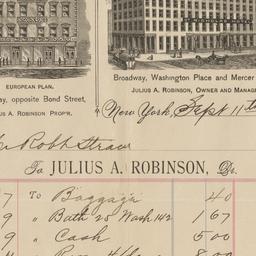 EUROPEAN PLAN.
ay, opposite Bond Street,
US A. ROBINSON PROP'R.
Broadway, Washington Place and Mercer
JULIUS A. ROBINSON, OWNER AND MANAGE
New York, Sept 11th
Robt Straw
To JULIUS A. ROBINSON, Dr.
7 To Baggage 40
9 " Bath 25 Wash 142 1 67
9 " Cash 5 00
8 00